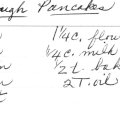 ugh Pancakes
1 1/4 c. flou
1/4 c. milk
2 t. bak
2 T. oil